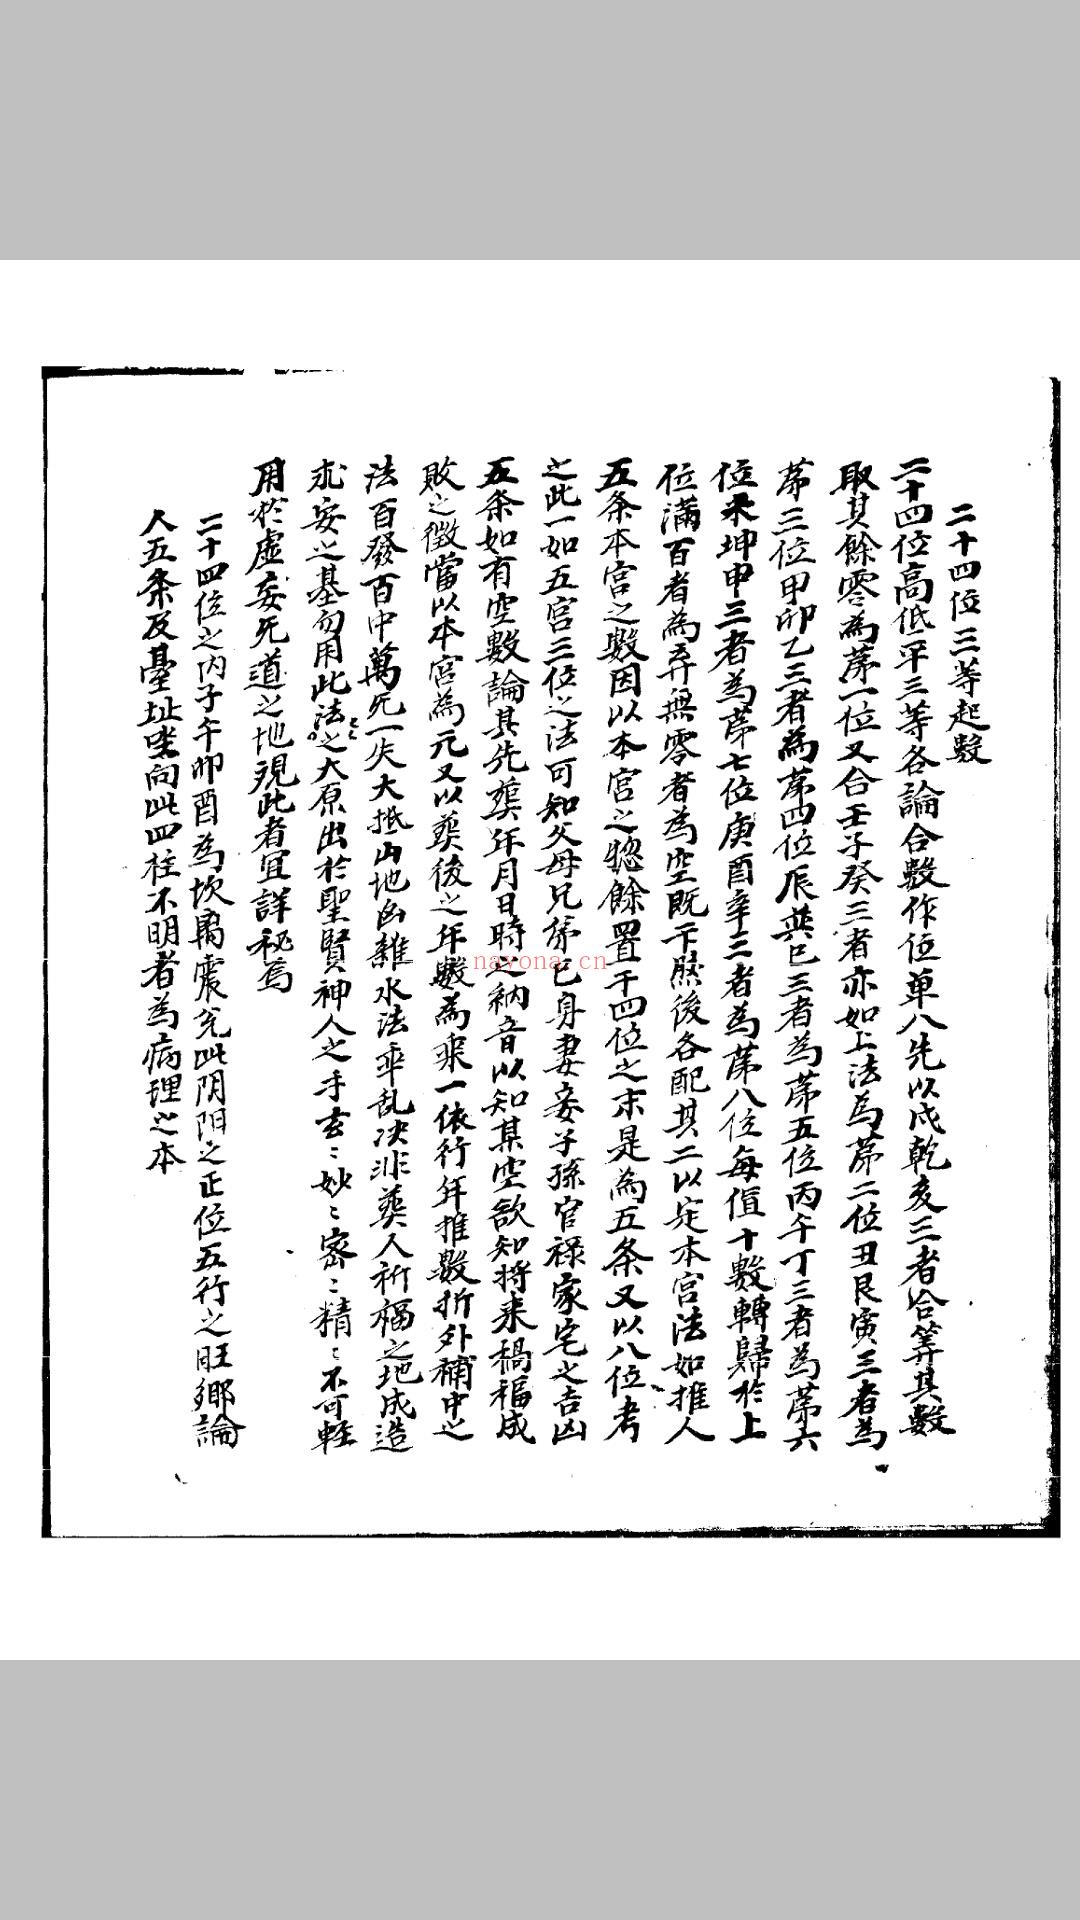 二十四位三等起数
二十四位高低平三等各論合數作位單八先以戌乾亥三者合筭其數
取其餘零為苐一位又合壬子癸三者亦如上法為苐二位丑艮寅三者為
苐三位甲卯乙三者為苐四位辰巽巳三者為苐五位丙午丁三者為苐六
位未坤申三者為苐七位庚酉辛三者為苐八位每值十數轉歸於上
位滿百者為弃無零者為空既下然後各配其二以定本宫法如推人
五条本宫之數因以本宫之揔餘置于四位之末是為五条又以八位考
之此一如五宫三位之法可知父母兄弟己身妻妾子孫官禄家宅之吉凶
五条如有空數論其先塟年月日時之納音以知某空欲知将来禍福成
敗之徵當以本宫為元又以塟後之年數為乘一依行年推數折外補中之
法百發百中萬无一失大抵山地凶雜水法乖乱决非塟人祈福之地成造
求安之基勿用此法〻之大原出於聖賢神人之手玄〻妙〻密〻精〻不可軽
用於虚妄无道之地現此者宜詳秘焉
二十四位之内子午卯酉為坎离震兊此阴阳之正位五行之旺鄉論
人五条及䑓址坐向此四柱不明者為病理之本
nayona.cn